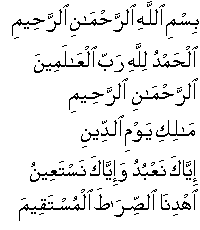 بِسْمِ ٱللَّهِ ٱلرَّحْمَـٰنِ ٱلرَّحِيمِ
ٱلْحَمْدُ لِلَّهِ رَبِّ ٱلْعَـٰلَمِينَ
ٱلرَّحْمَـٰنِ ٱلرَّحِيمِ
مَـٰلِكِ يَوْمِ ٱلدِّينِ
إِيَّاكَ نَعْبُدُ وَإِيَّاكَ نَسْتَعِينُ
ٱهْدِنَا ٱلصِّرَٰطَ ٱلْمُسْتَقِيمَ